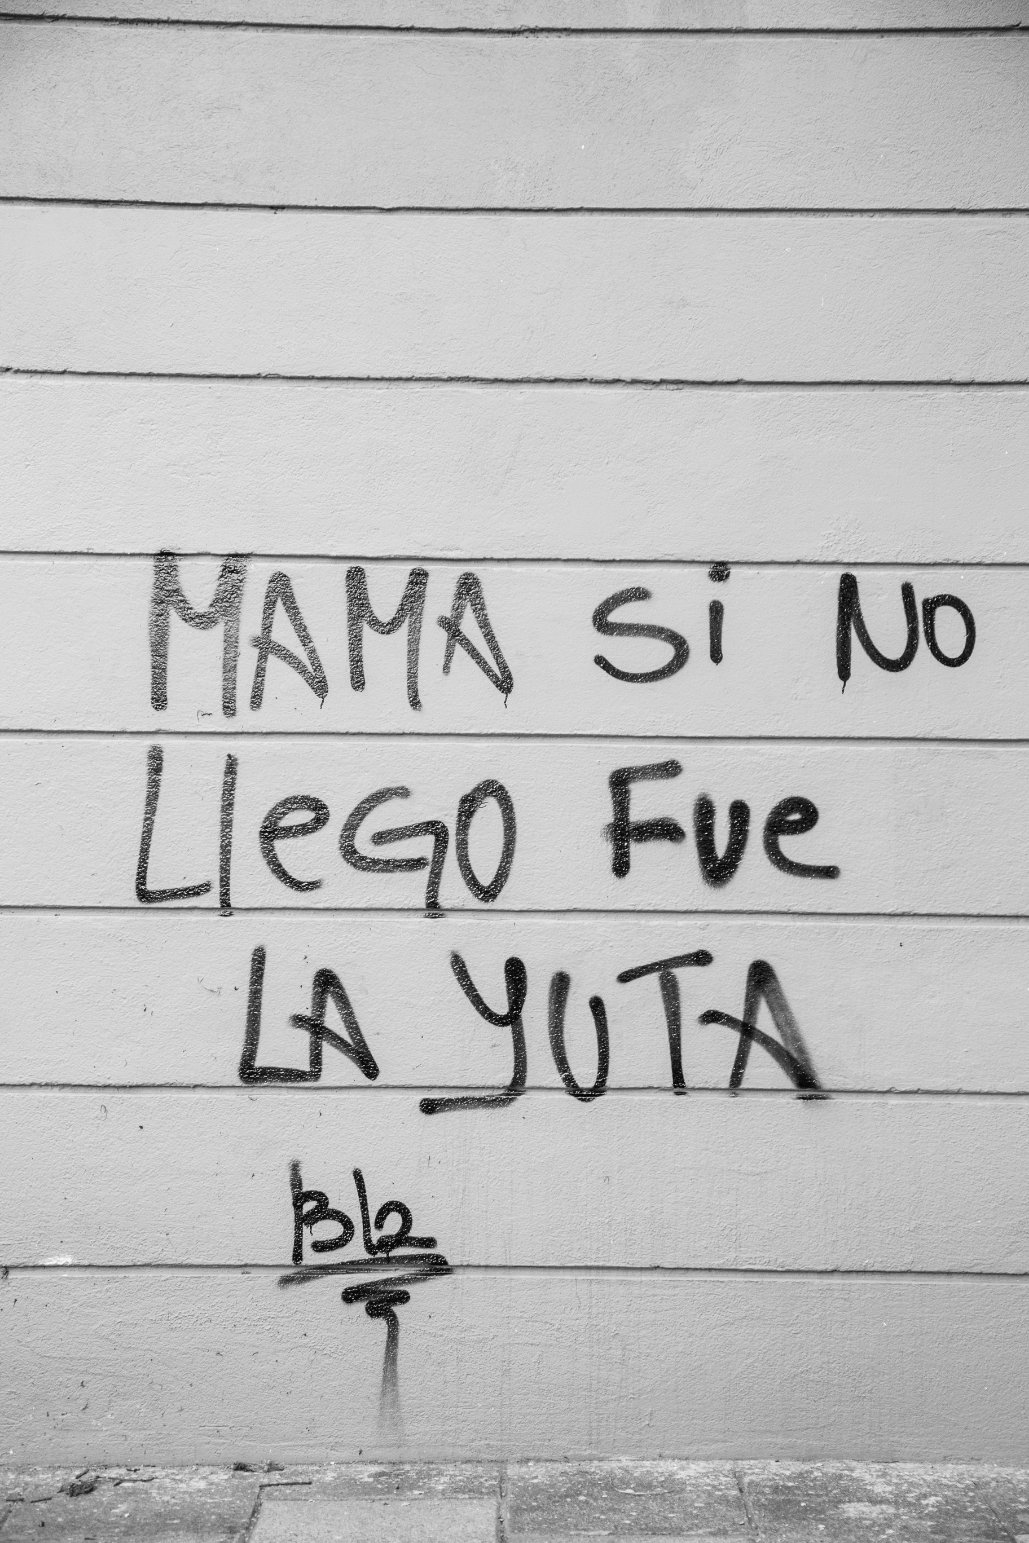 MAMA Si NO
LleGO Fue
LA YUTA